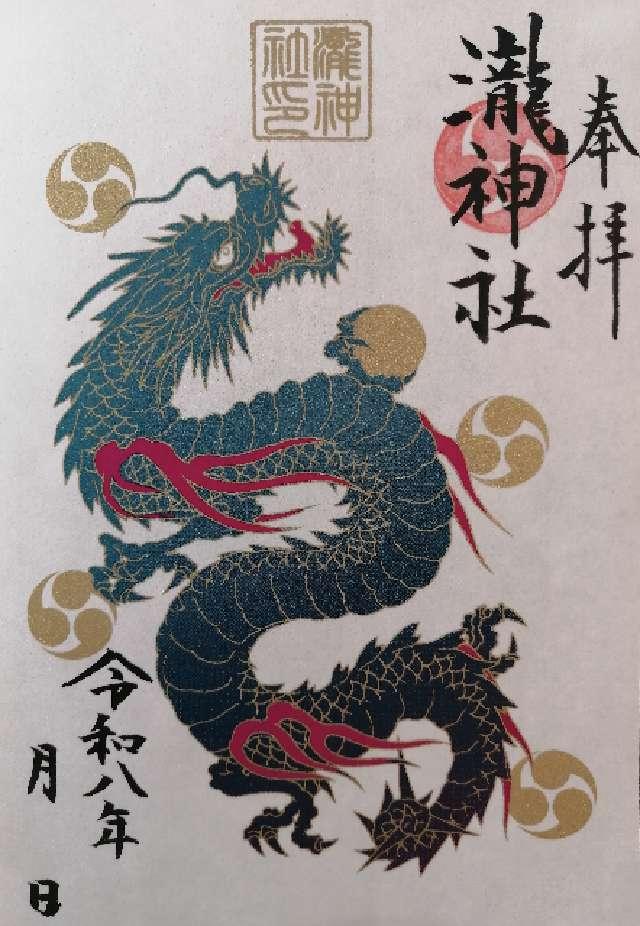 奉拝
瀧神社
瀧神
社印
令和八年
月 日